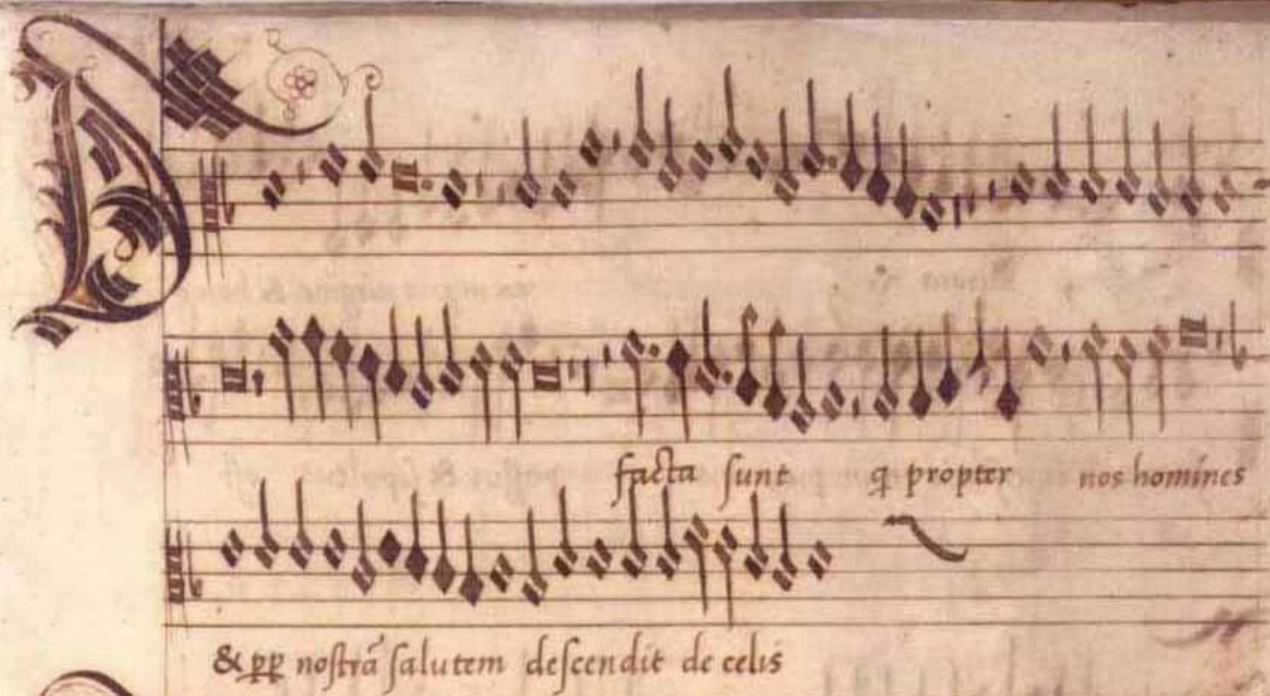 facta ſunt q̃ propter nos homines
& ꝑꝑ noſtrã ſalutem deſcendit de celis